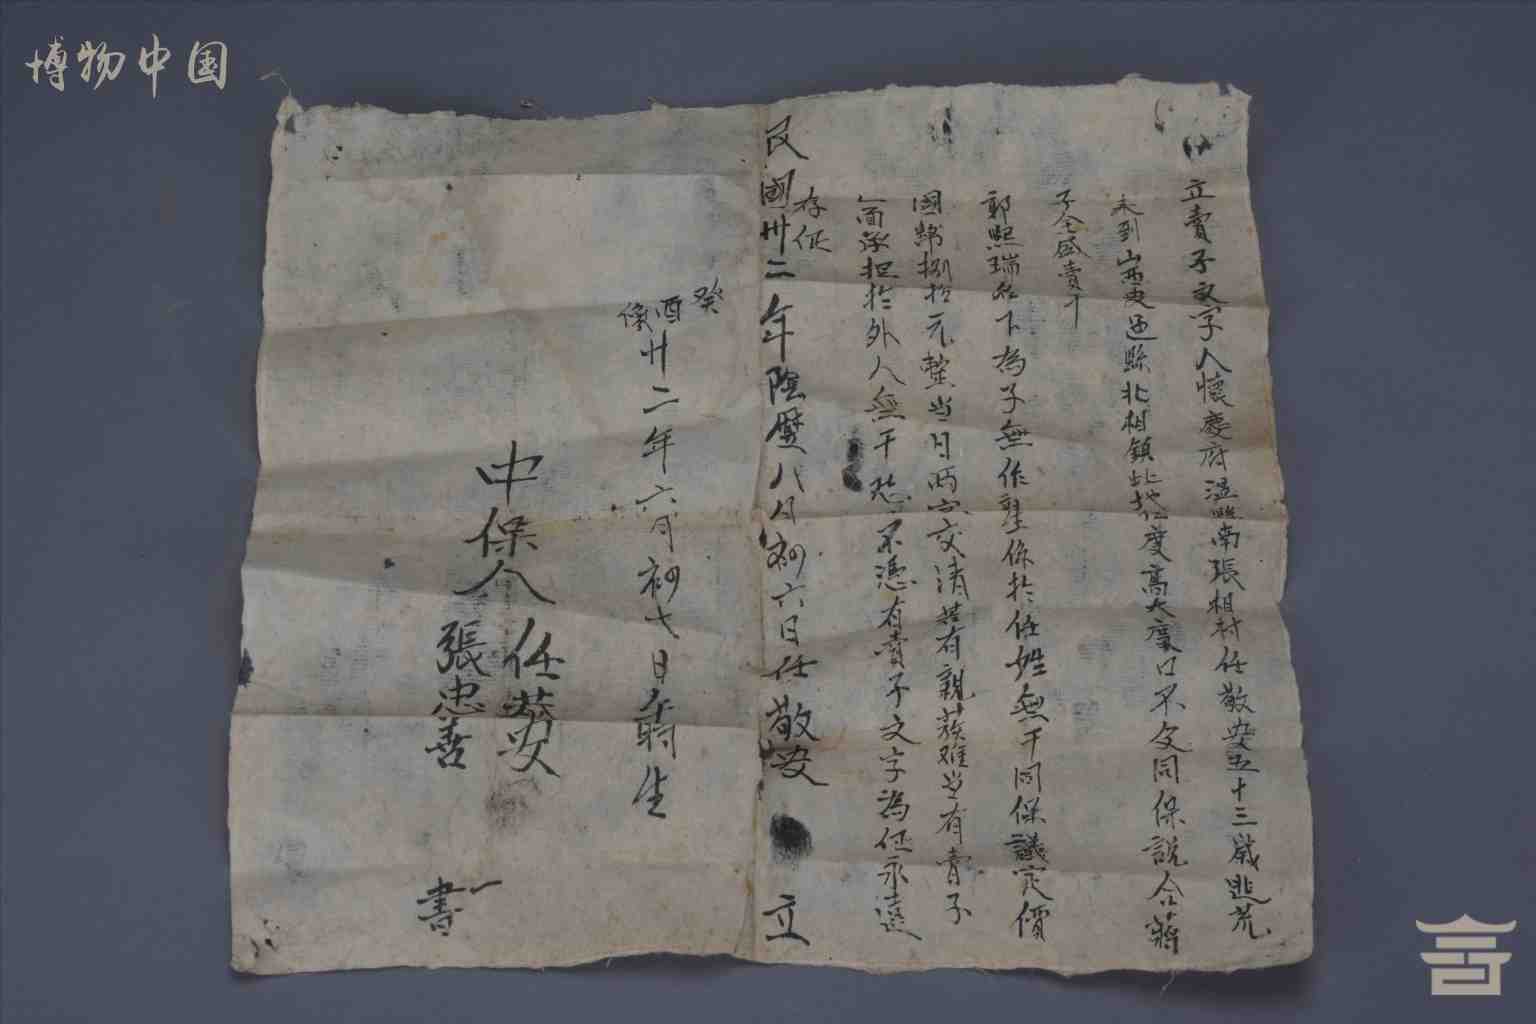 博物中国
立賣子文字人懷慶府温縣南張相村任敬安五十三歲逃荒
來到山西安邑縣北相鎮北地仁度高大度口不交同保說合蔣
子全盛賣于
郭熙瑞名下為子無作孽係於任姓無干同保議定價
國幣捌拾元整当日兩家交清若有親族难当有賣子
人面承担於外人無干恐口不憑有賣子文字為証永遠
存証
民國卅二年陰歷八月初六日任敬安 立
癸酉像廿二年六月初七日 生
中保人 任安
張忠善 書